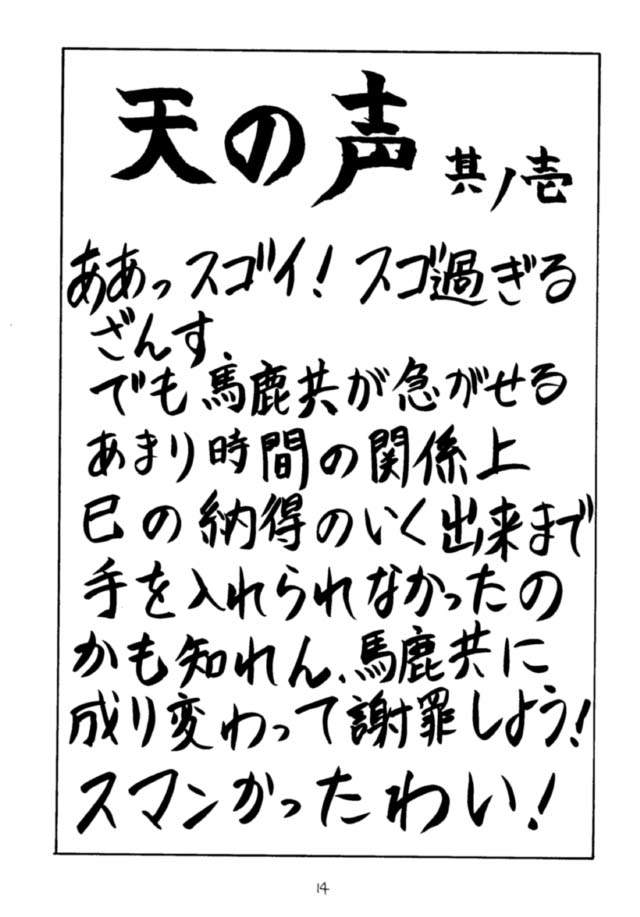 天の声 其ノ壱
ああっスゴイ! スゴ過ぎる
ざんす、
でも馬鹿共が急がせる
あまり時間の関係上
巳の納得のいく出来まで
手を入れられなかったの
かも知れん、馬鹿共に
成り変わって謝罪しよう!
スマンかったわい!
14